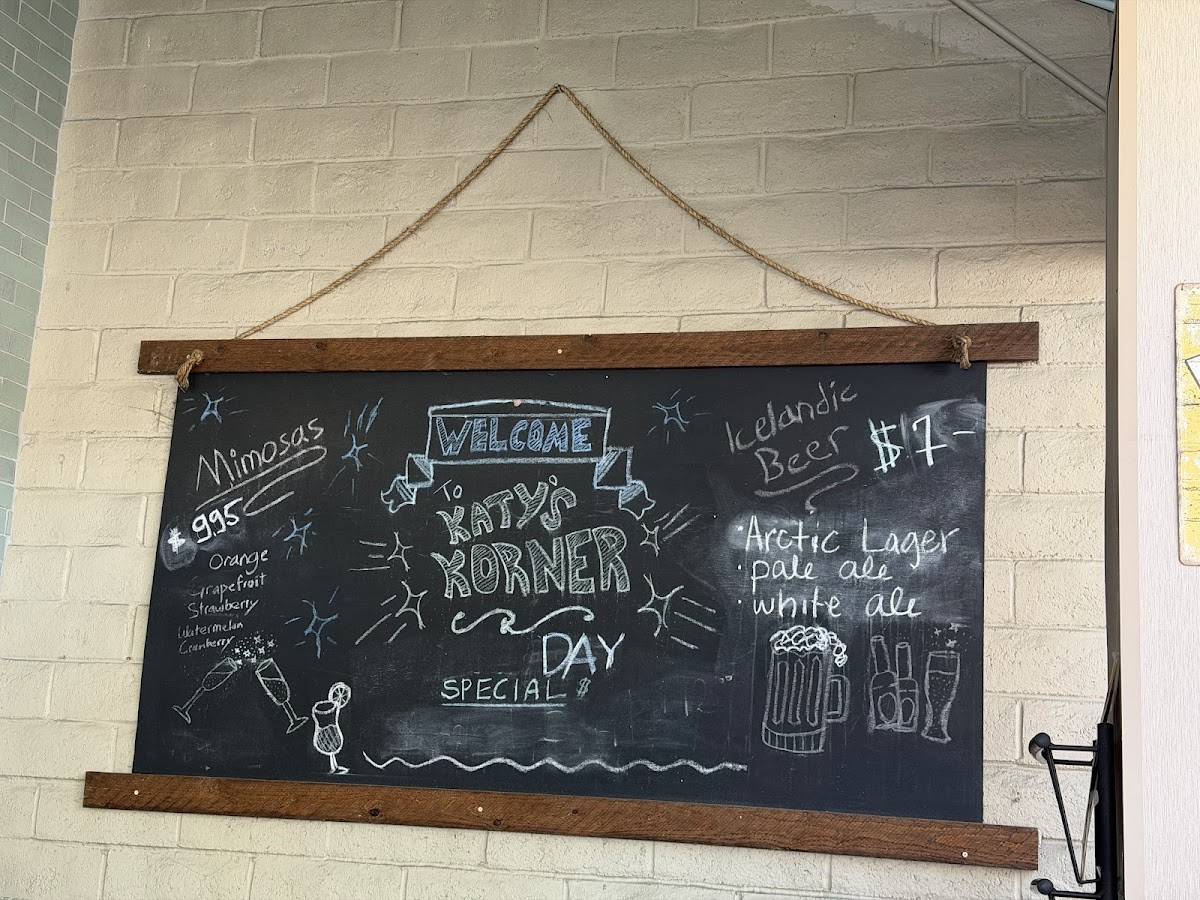 Mimosas
$ 9.95
Orange
Grapefruit
Strawberry
Watermelon
Cranberry
WELCOME
To
KATY'S
KORNER
DAY
SPECIAL $
Icelandic
Beer
$7-
· Arctic Lager
· pale ale
· white ale